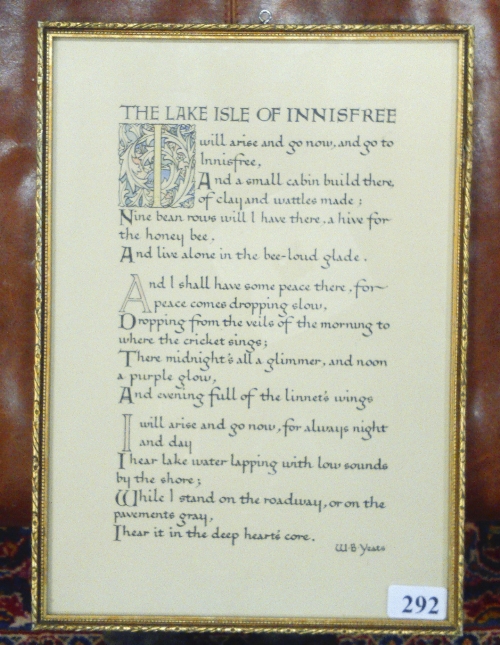 THE LAKE ISLE OF INNISFREE
I will arise and go now, and go to
Innisfree,
And a small cabin build there,
of clay and wattles made;
Nine bean rows will I have there, a hive for
the honey bee,
And live alone in the bee-loud glade.
And I shall have some peace there, for
peace comes dropping slow,
Dropping from the veils of the morning to
where the cricket sings;
There midnight's all a glimmer, and noon
a purple glow,
And evening full of the linnet's wings
I will arise and go now, for always night
and day
I hear lake water lapping with low sounds
by the shore;
While I stand on the roadway, or on the
pavements gray,
I hear it in the deep heart's core.
W·B·Yeats
292